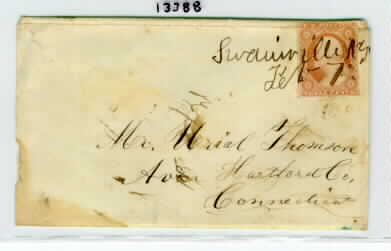 13388
Swainville Ny
Feb 7
Mr. Uriel Thomson
Avon Hartford Co,
Connecticut